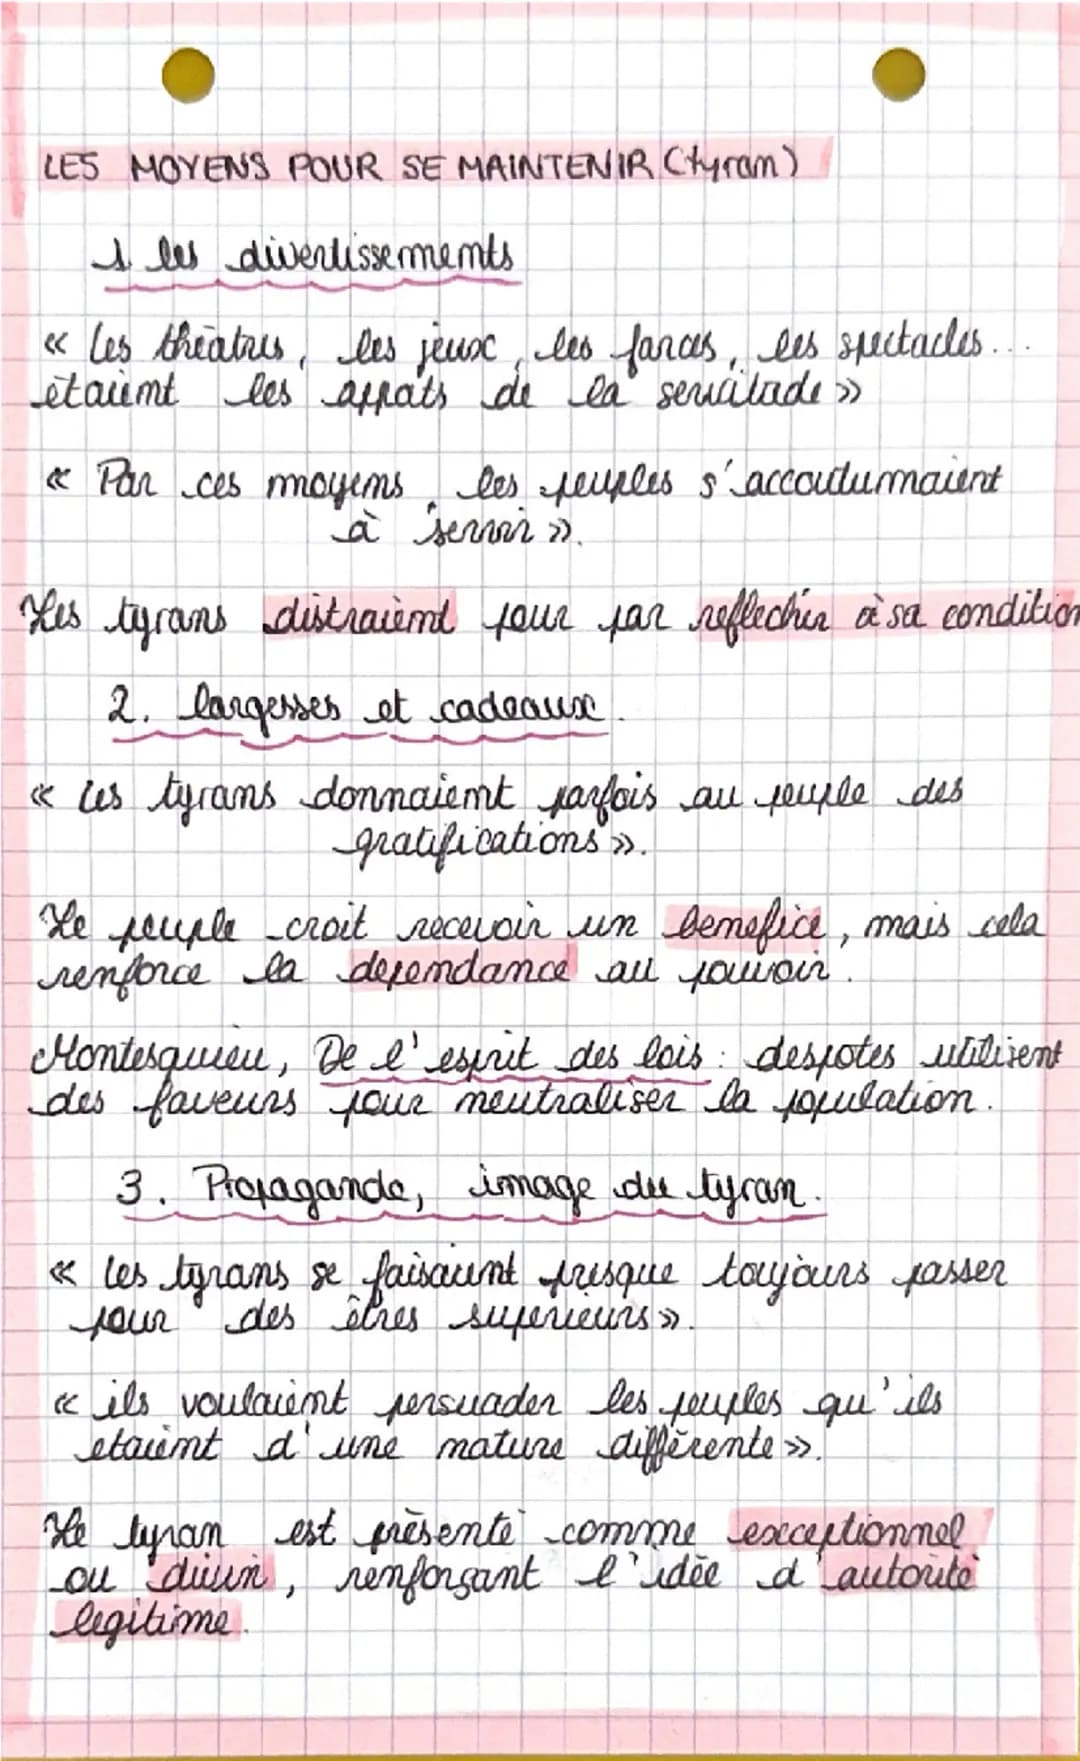 LES MOYENS POUR SE MAINTENIR (tyran)
1 les divertissements
« Les théatres, les jeux, les farces, les spectacles...
étaient les appats de la servitude »
« Par ces moyens, les peuples s'accoutumaient
à servir ».
Les tyrans distraient pour pas reflechir à sa condition
2. largesses et cadeaux.
« Les tyrans donnaient parfois au peuple des
gratifications ».
Le peuple croit recevoir un benefice, mais cela
renforce la dependance au pouvoir.
Montesquieu, De l'esprit des lois : despotes utilisent
des faveurs pour neutraliser la population.
3. Propagande, image du tyran.
« Les tyrans se faisaient presque toujours passer
pour des êtres superieurs ».
« ils voulaient persuader les peuples qu'ils
etaient d'une nature différente ».
Le tyran est présenté comme exceptionnel
ou divin, renforçant l'idée d'autorité
legitime.